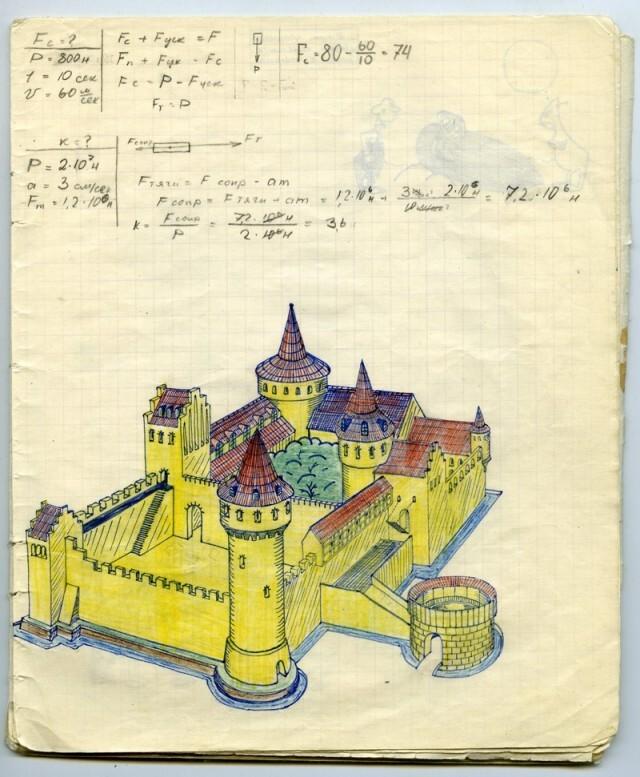 Fс = ?
P = 800 н
t = 10 сек
v = 60 м/сек
Fс + Fуск = F
Fп + Fук = Fс
Fс = P - Fуск
Fт = P
P
Fс = 80 - 60/10 = 74
к = ?
P = 2·10⁷н
a = 3 см/сек
Fт = 1,2·10⁶н
Fсопр
Fт
Fтяги = Fсопр - am
Fсопр = Fтяги - am = 1,2·10⁶н · 2·10⁶н = 7,2·10⁶н
к = Fсопр/P = 7,2·10⁶н/2·10⁶н = 3,6